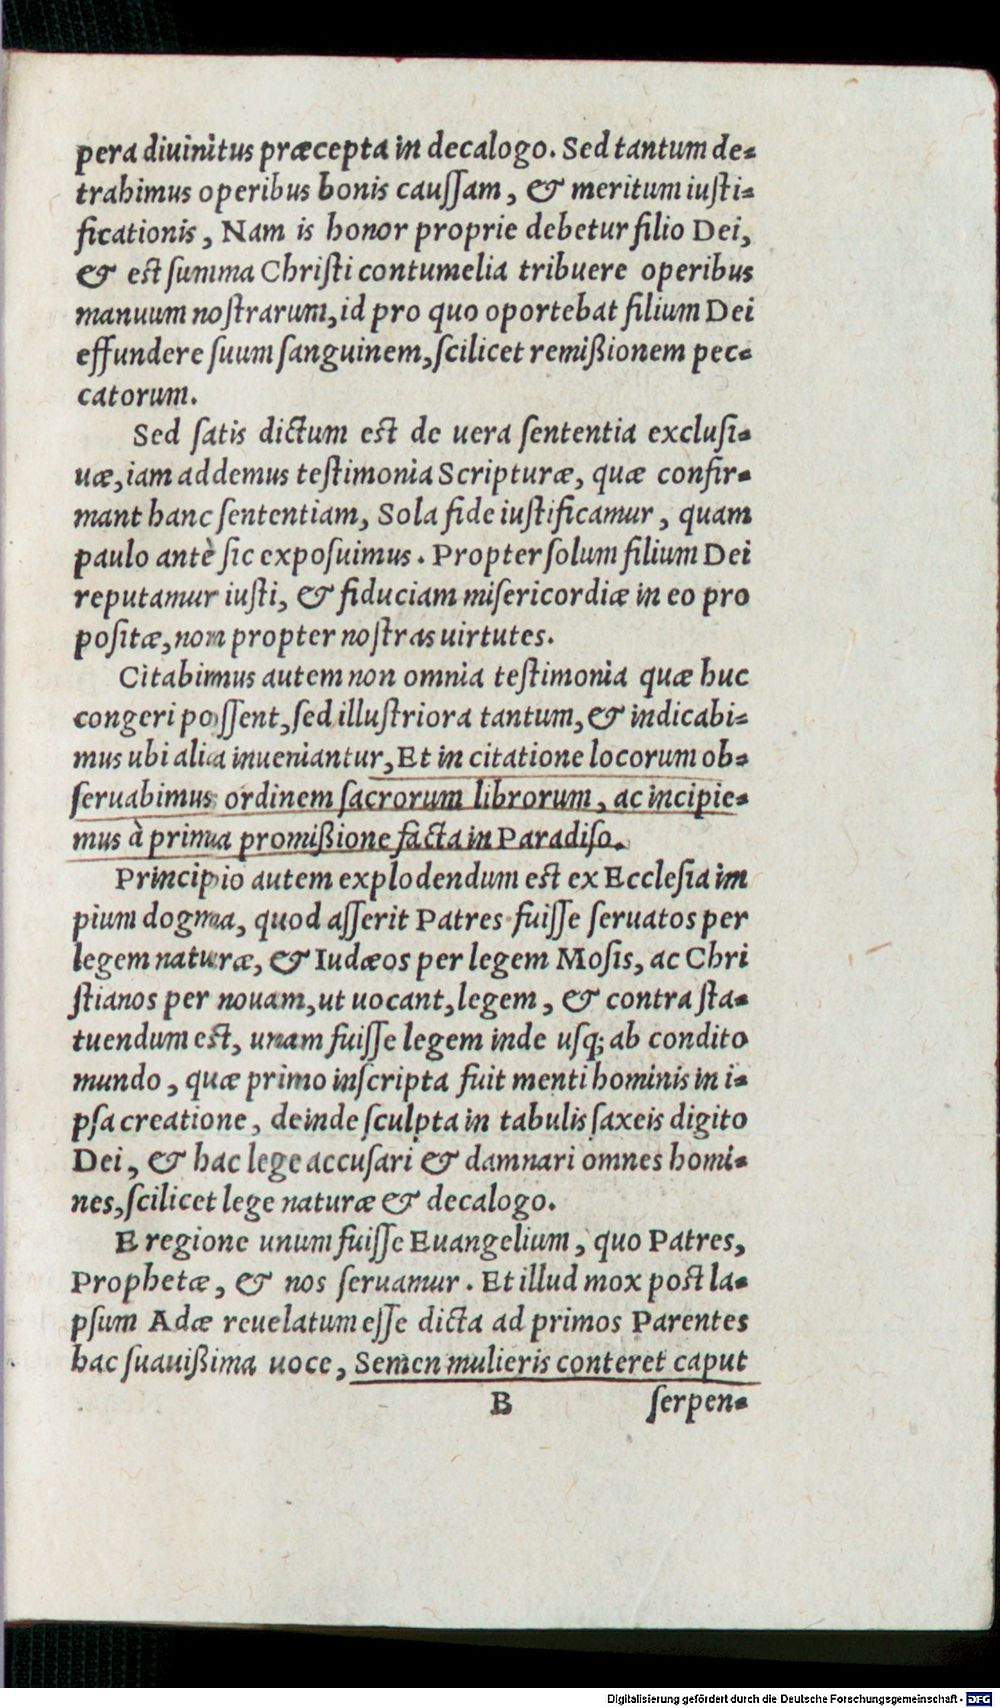 pera diuinitus præcepta in decalogo. Sed tantum de-
trahimus operibus bonis caußam, & meritum iusti-
ficationis, Nam is honor proprie debetur filio Dei,
& est summa Christi contumelia tribuere operibus
manuum nostrarum, id pro quo oportebat filium Dei
effundere suum sanguinem, scilicet remißionem pec-
catorum.
Sed satis dictum est de uera sententia exclusi-
uæ, iam addemus testimonia Scripturæ, quæ confir-
mant hanc sententiam, Sola fide iustificamur, quam
paulo antè sic exposuimus. Propter solum filium Dei
reputamur iusti, & fiduciam misericordiæ in eo pro
positæ, non propter nostras uirtutes.
Citabimus autem non omnia testimonia quæ huc
congeri possent, sed illustriora tantum, & indicabi-
mus ubi alia inueniantur, Et in citatione locorum ob-
seruabimus ordinem sacrorum librorum, ac incipie-
mus à prima promißione facta in Paradiso.
Principio autem explodendum est ex Ecclesia im
pium dogma, quod asserit Patres fuisse seruatos per
legem naturæ, & Iudæos per legem Mosis, ac Chri
stianos per nouam, ut uocant, legem, & contra sta-
tuendum est, unam fuisse legem inde usq; ab condito
mundo, quæ primo inscripta fuit menti hominis in i-
psa creatione, deinde sculpta in tabulis saxeis digito
Dei, & hac lege accusari & damnari omnes homi-
nes, scilicet lege naturæ & decalogo.
E regione unum fuisse Euangelium, quo Patres,
Prophetæ, & nos seruamur. Et illud mox post la-
psum Adæ reuelatum esse dicta ad primos Parentes
hac suauißima uoce, Semen mulieris conteret caput
B serpen-
Digitalisierung gefördert durch die Deutsche Forschungsgemeinschaft - DFG